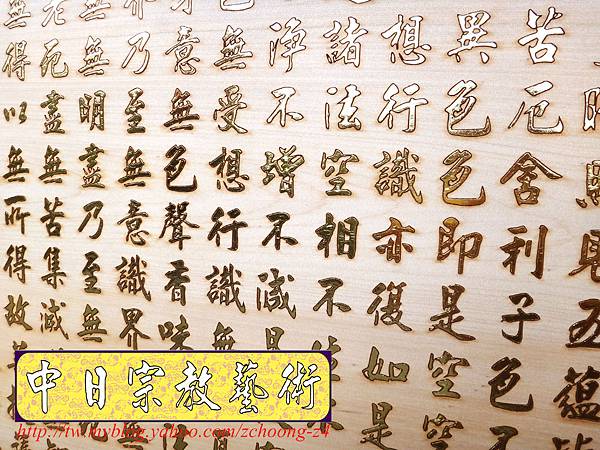 時照見五蘊皆
苦厄舍利子色不
異色色即是空空
想行識亦復如是
諸法空相不生不
淨不增不減是
無受想行識無
意無色聲香味
界乃至無意識界
無無明盡乃至無
老死盡無苦集滅
得以無所得故菩
中日宗教藝術
http://tw.myblog.yahoo.com/zchoong-z4